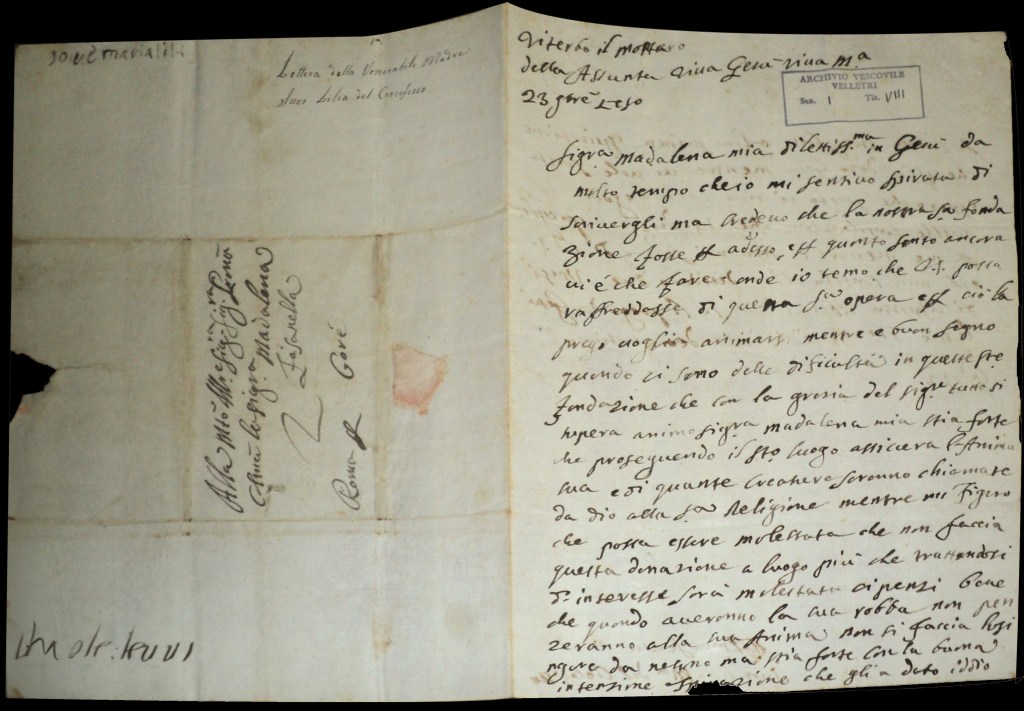 Lettera della Venerabile Madre
Suor Lilia del Crocifisso
Alla
Sigra
Madalena
Fasanella
Roma Goré
Viterbo il
della Assunta viva Gesù viva Ma
23
ARCHIVIO VESCOVILE
VELLETRI
Sez. I Tit. VIII
Sigra madalena mia dilettissma in Gesù da
molto tempo che io mi sentivo spirata di
scrivergli ma credevo che la nostra Sa fonda
zione fosse adesso, e quanto sento ancora
ci è che fare donde io temo che V.S. possa
raffreddasse di questa Sa opera e ciò la
prego voglia animarsi mentre e buon segno
quando ci sono delle dificultà in queste Ste
fondazione che con la grazia del Sigre tutto si
supera animo Sigra madalena mia stia forte
che proseguendo il Sto luogo assicura l'Anima
sua e di quante creature saranno chiamate
da dio alla Sa Religione mentre mi Figuro
che possa essere molestata che non faccia
questa donazione a luogo più che trattandosi
di interesse sarà molestata ci pensi bene
che quando averanno la sua robba non pen
zeranno alla sua Anima non si faccia lusi
ngare da nesuno ma stia forte con la buona
intenzione che gli a dato iddio